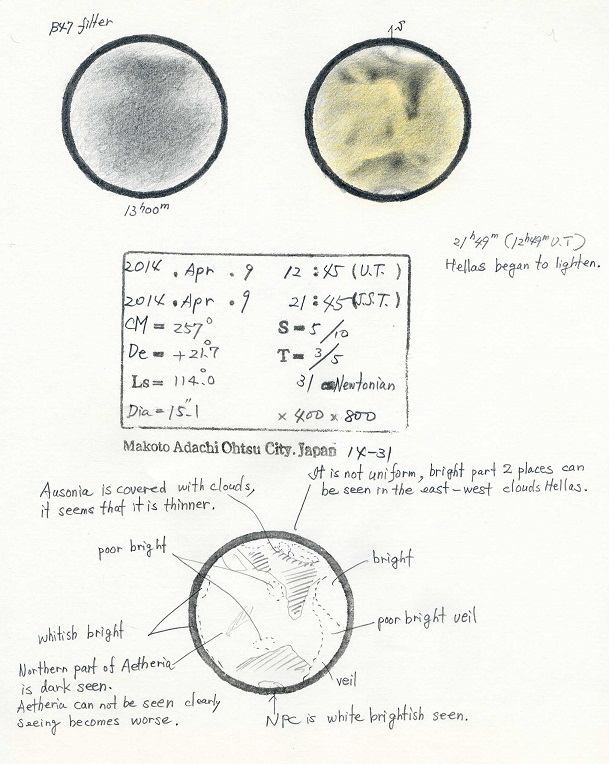 B47 filter
13h00m
21h49m (12h49m U.T)
Hellas began to lighten.
2014 . Apr . 9 12 : 45 (U.T. )
2014 . Apr . 9 21 : 45 (J.S.T. )
CM = 257° S = 5/10
De = +21.°7 T = 3/5
Ls = 114.°0 31 cm Newtonian
Dia = 15."1 × 400 × 800
Makoto Adachi Ohtsu City. Japan 14-31
It is not uniform, bright part 2 places can
be seen in the east-west clouds Hellas.
Ausonia is covered with clouds,
it seems that it is thinner.
poor bright
bright
poor bright veil
whitish bright
Northern part of Aetheria
is dark seen.
Aetheria can not be seen clearly
seeing becomes worse.
veil
NPC is white brightish seen.